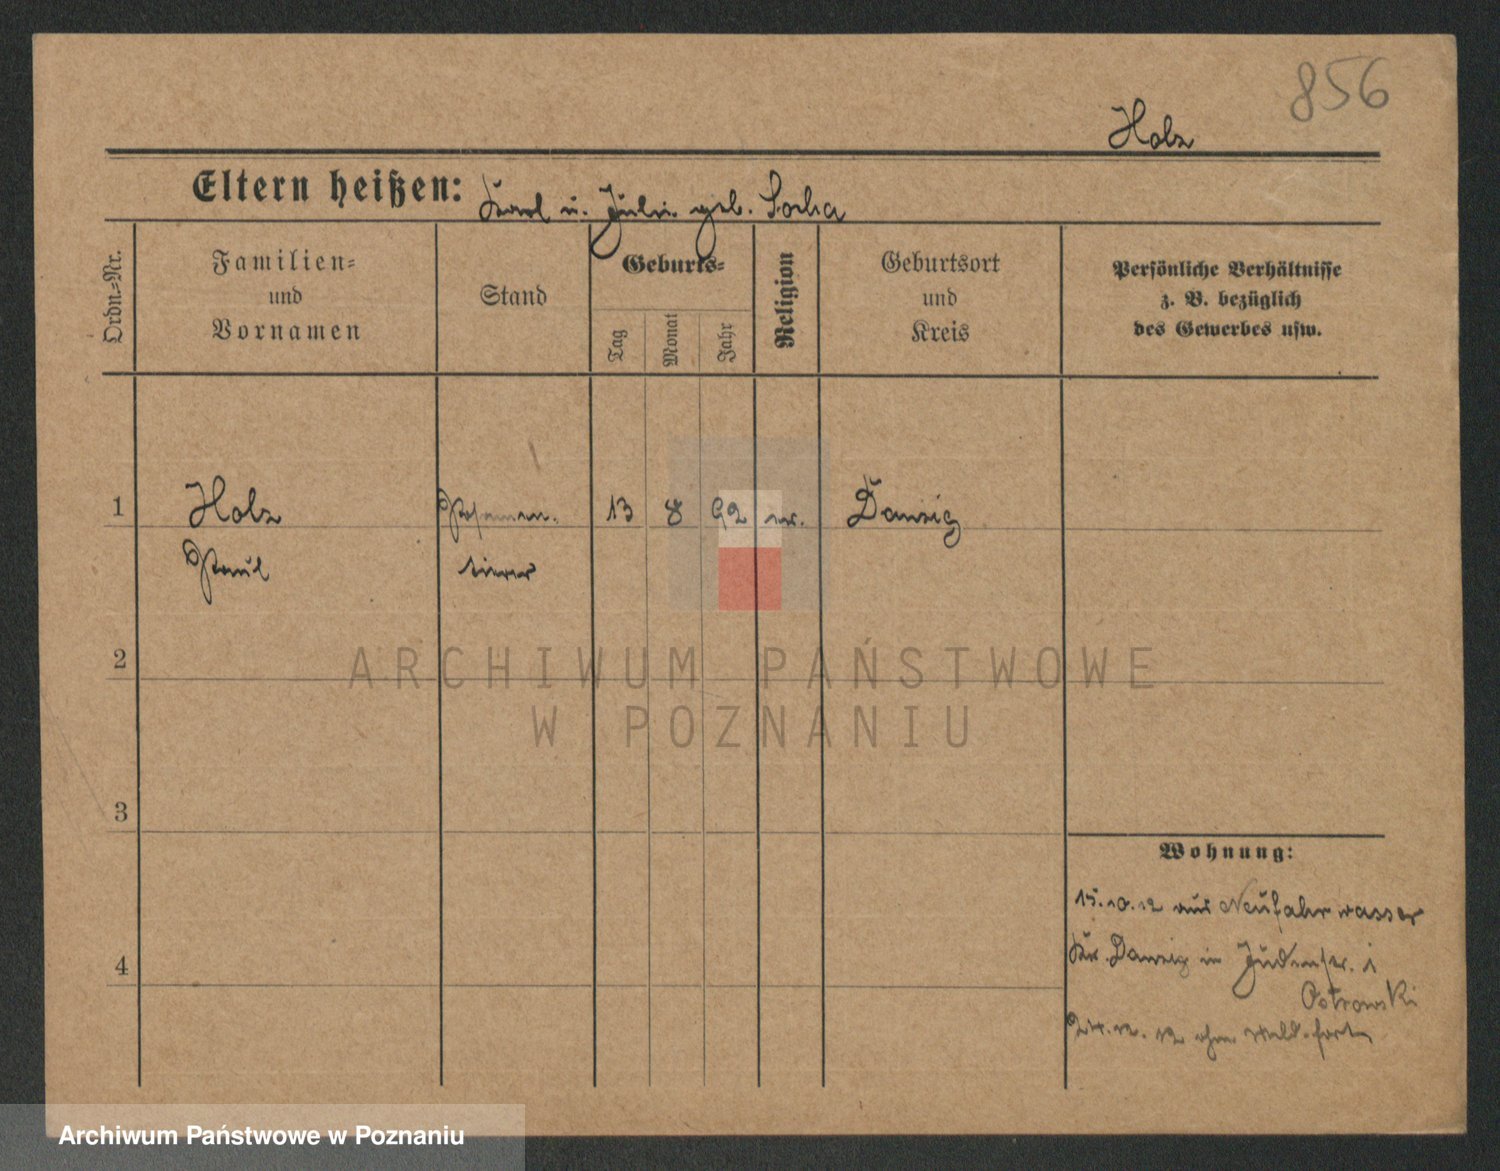 856
Holz
Eltern heißen: Karl u. Juli geb. Socha
Ordn.-Nr.
Familien-
und
Vornamen
Stand
Geburts-
Tag
Monat
Jahr
Religion
Geburtsort
und
Kreis
Persönliche Verhältnisse
z. B. bezüglich
des Gewerbes usw.
1 Holz Posamen. 13 8 92 ev. Danzig
Paul tierer
2
ARCHIWUM PAŃSTWOWE
W POZNANIU
3
Wohnung:
15.10.12 aus Neufahrwasser
Kr. Danzig in Judenstr. 1
4
Ostrowski
24.12.12 ohne Meld. fort
Archiwum Państwowe w Poznaniu